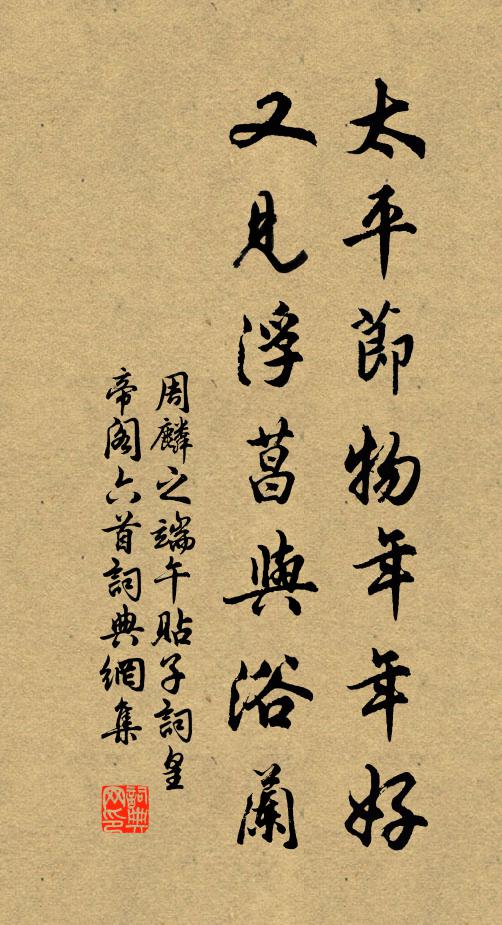 太平節物年年好
又見浮菖與浴蘭
周麟之端午貼子詞皇
帝閣六首詞典網集